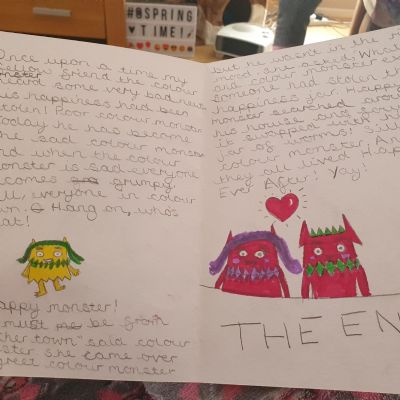 #8SPRING
TIME!
Once upon a time my
fellow friend the colour
monster
some very bad news
his happiness had been
stolen! Poor colour monster
Today he has become
the sad colour monster
and when the colour
monster is sad everyone
becomes grumpy.
Well, everyone in colour
town. Hang on, who's
that!
Happy monster!
must be from
other town" said colour
monster she came over
greet colour monster
but he wasn't in the
mood
asked. What
and colour monster
someone had stolen
happiness jar. Happy
monster searched around
his house and
it swapped with
jar of worms! Silly
colour monster. And
they all lived Happ
Ever After! Yay!
THE EN